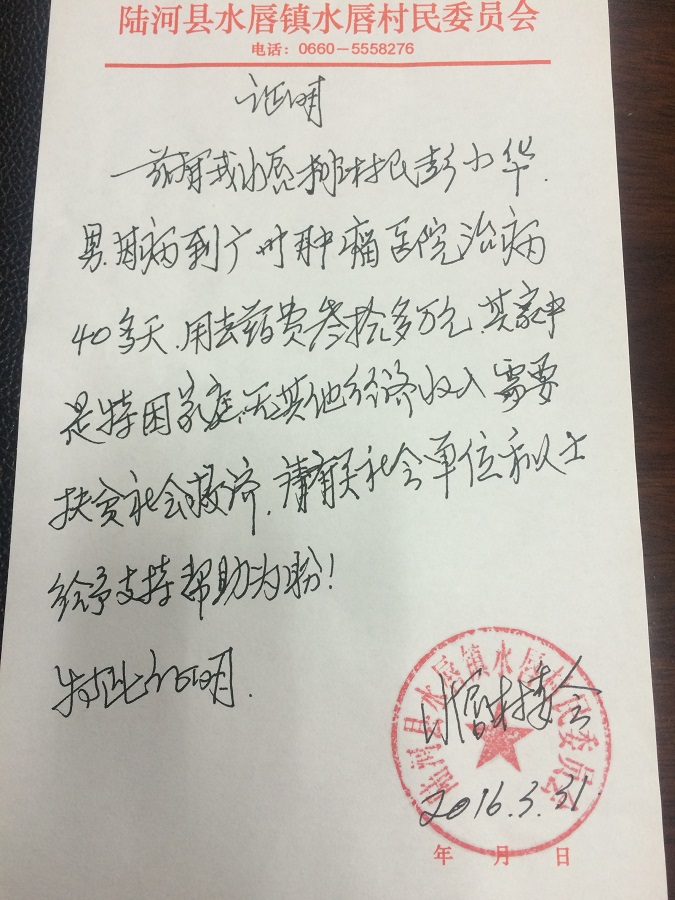 陆河县水唇镇水唇村民委员会
电话：0660－5558276
证明
兹有我水唇 村民彭小华.
男.因病到广州肿瘤医院治病
40多天.用去药费叁拾多万元.其家中
是特困家庭.无其他经济收入需要
扶贫社会救济.请有关社会单位和人士
给予支持帮助为盼！
特此证明.
陆河县水唇镇水唇村民委员会
水唇村委会
2016.3.31
年 月 日